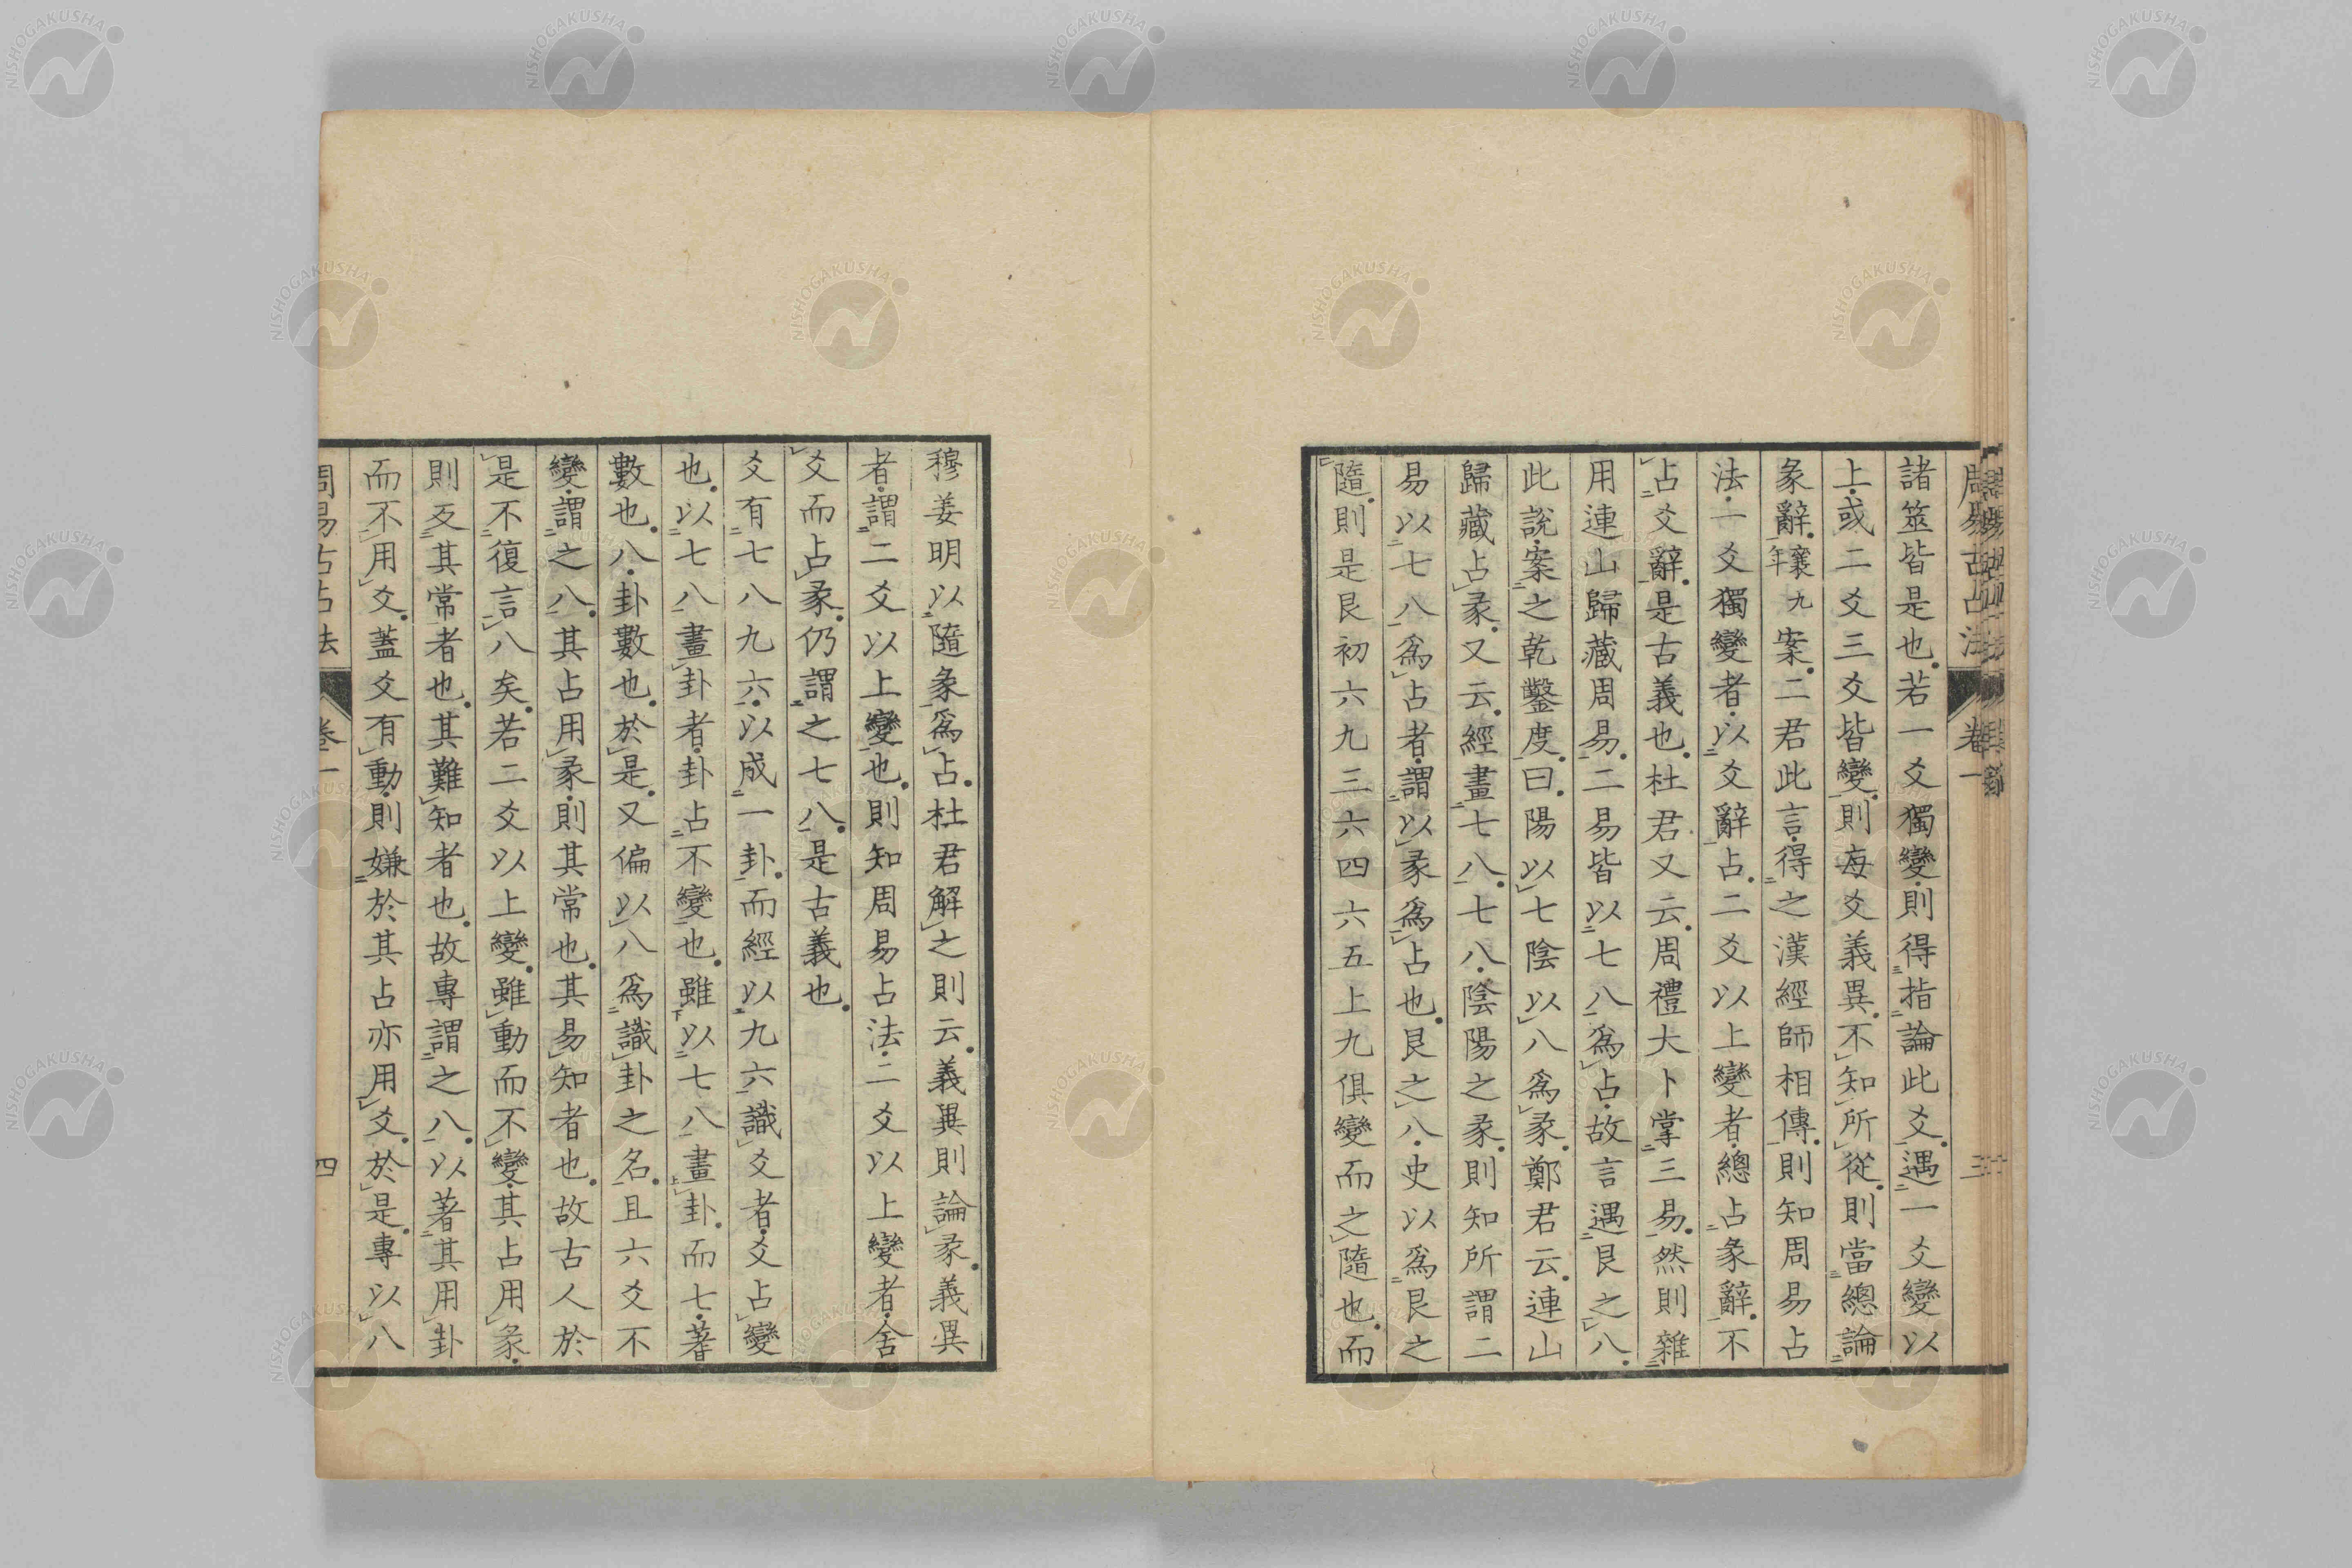 周易古占法 卷一 三
諸筮皆是也若一爻獨變則得指論此爻遇一爻變以
上或二爻三爻皆變則每爻義異不知所從則當總論
彖辭襄九年案二君此言得之漢經師相傳則知周易占
法一爻獨變者以爻辭占二爻以上變者總占彖辭不
占爻辭是古義也杜君又云周禮大卜掌三易然則雜
用連山歸藏周易二易皆以七八爲占故言遇艮之八
此說案之乾鑿度曰陽以七陰以八爲彖鄭君云連山
歸藏占彖又云經畫七八七八陰陽之彖則知所謂二
易以七八爲占者謂以彖爲占也艮之八史以爲艮之
隨則是艮初六九三六四六五上九俱變而之隨也而
穆姜明以隨彖爲占杜君解之則云義異則論彖義異
者謂二爻以上變也則知周易占法二爻以上變者舍
爻而占彖仍謂之七八是古義也
爻有七八九六以成一卦而經以九六識爻者爻占變
也以七八畫卦者卦占不變也雖以七八畫卦而七蓍
數也八卦數也於是又偏以八爲識卦之名且六爻不
變謂之八其占用彖則其常也其易知者也故古人於
是不復言八矣若二爻以上變雖動而不變其占用彖
則反其常者也其難知者也故專謂之八以著其用卦
而不用爻蓋爻有動則嫌於其占亦用爻於是專以八
周易古占法 卷一 四
NISHOGAKUSHA